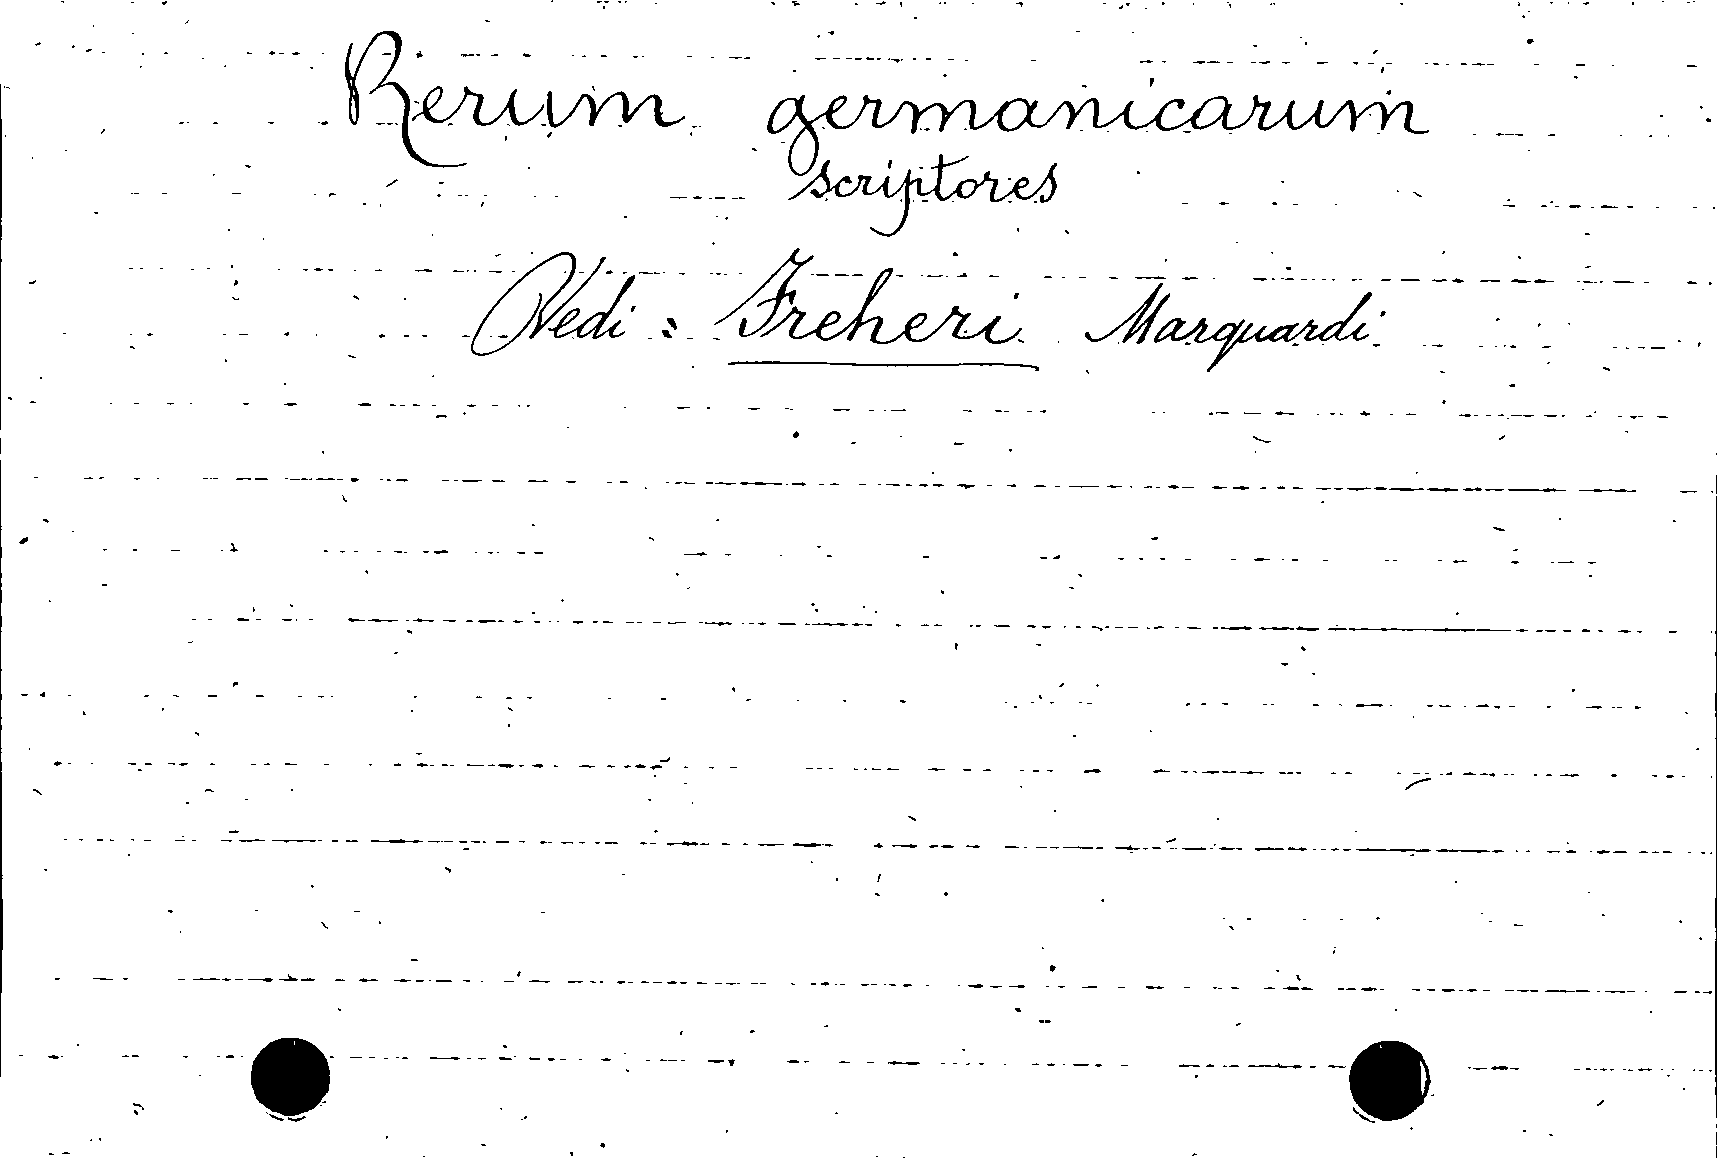 Rerum germanicarum
scriptores
Vedi: Freheri Marquardi